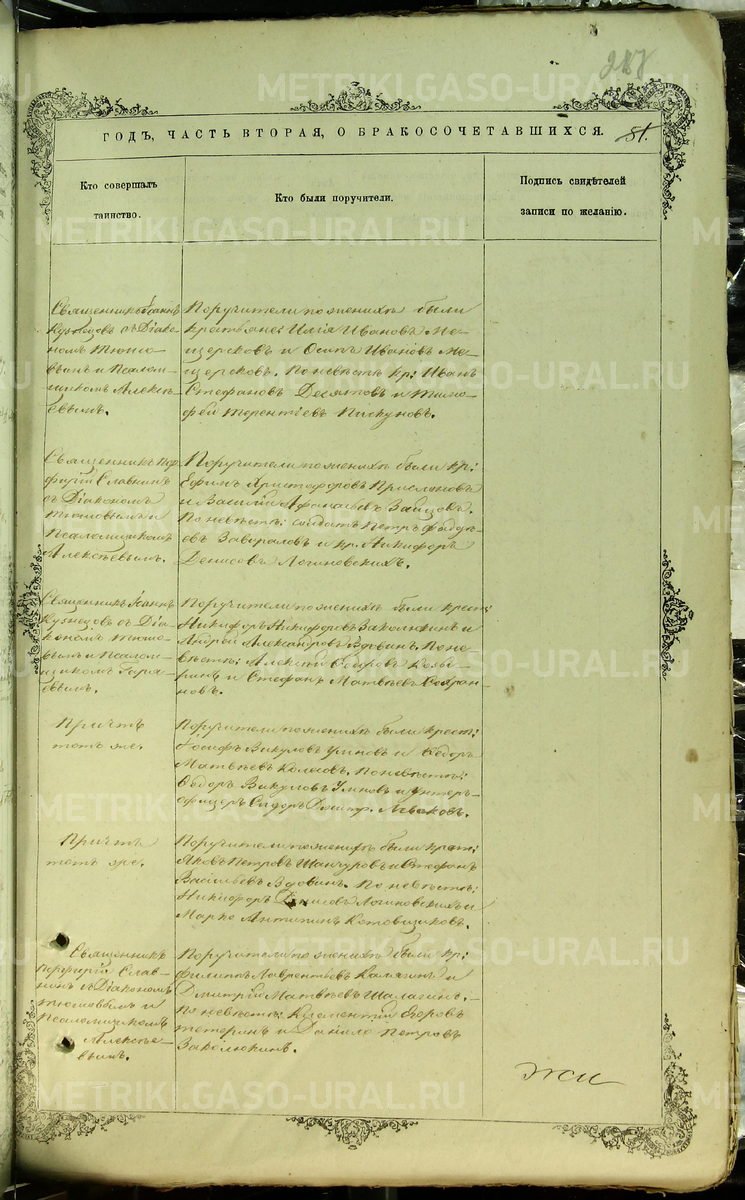 217
ГОДЪ, ЧАСТЬ ВТОРАЯ, О БРАКОСОЧЕТАВШИХСЯ.
81.
Кто совершалъ
таинство.
Кто были поручители.
Подпись свидѣтелей
записи по желанію.
Священникъ Іоаннъ
Кузнецовъ съ Діако-
номъ Тюшо-
вымъ и Псалом-
щикомъ Алексѣ-
евымъ.
Поручители по женихѣ были
крестьяне: Илія Ивановъ Ме-
щерсковъ и Осипъ Ивановъ Ме-
щерсковъ. По невѣстѣ кр: Иванъ
Стефановъ Десятовъ и Тимо-
фей Терентіевъ Пискуновъ.
Священникъ Пор-
фирій Славнинъ
съ Діакономъ
Тюшовымъ и
Псаломщикомъ
Алексѣевымъ.
Поручители по женихѣ были кр:
Ефимъ Христофоровъ
и Василій Афанасьевъ Зайцовъ.
По невѣстѣ: солдатъ Петръ
Завораловъ и кр. Никифоръ
Денисовъ Логиновскихъ.
Священникъ Іоаннъ
Кузнецовъ съ Діа-
кономъ Тюшо-
вымъ и Псалом-
щикомъ
Поручители по женихѣ были крест:
Никифоръ Никифоровъ Заколюкинъ и
Андрей Александровъ Вдовинъ. По не-
вѣстѣ: Алексѣй
и Стефанъ Матвѣевъ Сафро-
новъ.
Причтъ
тотъ же.
Поручители по женихѣ были крест:
Іосифъ Викуловъ Умновъ и Ѳедоръ
Матвѣевъ Колесовъ. По невѣстѣ:
Ѳедоръ Викуловъ Умновъ и унтеръ-
офицеръ Сидоръ Дмитр.
Причтъ
тотъ же.
Поручители по женихѣ были крест:
Яковъ Петровъ Шанчуровъ и Стефанъ
Васильевъ Вдовинъ. По невѣстѣ:
Никифоръ Денисовъ Логиновскихъ и
Марко Антипинъ Котовщиковъ.
Священникъ
Порфирій Слав-
нинъ съ Діакономъ
Тюшовымъ и
Псаломщикомъ
Алексѣе-
вымъ.
Поручители по женихѣ были кр:
Филиппъ Лаврентьевъ Калягинъ и
Дмитрій Матвѣевъ Шалагинъ.
По невѣстѣ: Клементій Егоровъ
Тетеринъ и Данило Петровъ
Заколюкинъ.
METRIKI.GASO-URAL.RU